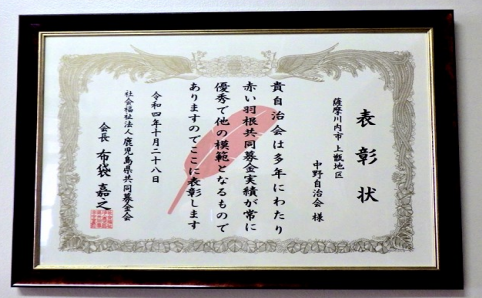 表彰状
薩摩川内市 上甑地区
中野自治会 様
貴自治会は多年にわたり
赤い羽根共同募金実績が常に
優秀で他の模範となるもので
ありますのでここに表彰します
令和四年十月二十八日
社会福祉法人鹿児島県共同募金会
会長 布袋 嘉之